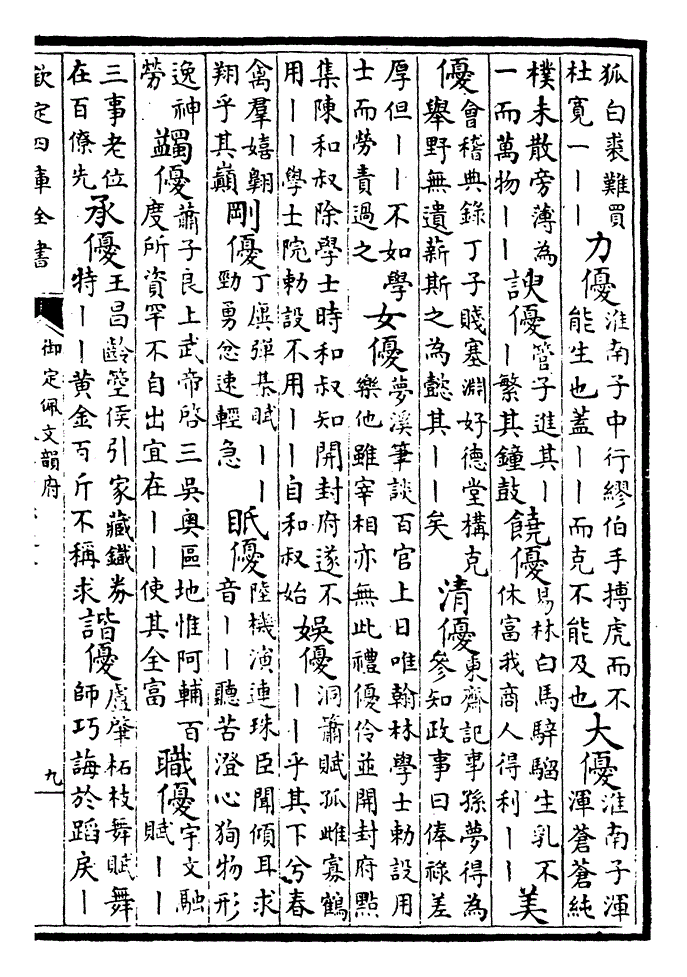 狐白裘難買
杜寛一｜｜
力優
淮南子中行繆伯手搏虎而不
能生也蓋｜｜而克不能及也
大優
淮南子渾
渾蒼蒼純
樸未散旁薄為
一而萬物｜｜
諛優
管子進其｜
｜繁其鐘鼓
饒優
易林白馬騂騮生乳不
休富我商人得利｜｜
美
優
會稽典錄丁子賤塞淵好德堂構克
舉野無遺薪斯之為懿其｜｜矣
清優
東齋記事孫夢得為
參知政事曰俸祿差
厚但｜｜不如學
士而勞責過之
女優
夢溪筆談百官上日唯翰林學士勅設用
樂他雖宰相亦無此禮優伶並開封府點
集陳和叔除學士時和叔知開封府遂不
用｜｜學士院勅設不用｜｜自和叔始
娛優
洞簫賦孤雌寡鶴
｜｜乎其下兮春
禽羣嬉翺
翔乎其巔
剛優
丁廙彈棊賦｜｜
勁勇忿速輕急
眡優
陸機演連珠臣聞傾耳求
音｜｜聽苦澄心狥物形
逸神
勞
蠲優
蕭子良上武帝啓三吳奥區地惟阿輔百
度所資罕不自出宜在｜｜使其全富
職優
宇文融
賦｜｜
三事老位
在百僚先
承優
王昌齡箜侯引家藏鐵券
特｜｜黃金百斤不稱求
諧優
盧肇柘枝舞賦舞
師巧誨於蹈戾｜
欽定四庫全書
御定佩文韻府
九